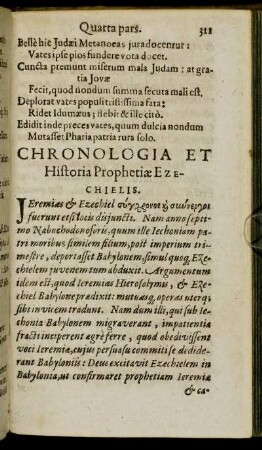 Quarta pars. 321
Bellè hic Judæi Metanoeas jura docentur:
Vates ipse pios fundere vota docet.
Cuncta premunt miserum mala Judam: at gra-
tia Jovæ
Fecit, quod nondum summa secuta mali est,
Deplorat vates populi tristissima fata:
Ridet Idumæus; flebit & ille citò.
Edidit inde preces vates, quum dulcia nondum
Mutasset Pharia patria rura solo.
CHRONOLOGIA ET
Historia Prophetiæ EZE-
CHIELIS.
Jeremias & Ezechiel σύγχρονοι & συνεργοι
fuerunt etsi locis disjuncti. Nam anno septi-
mo Nabuchodonosoris, quum ille Iechoniam pa-
tri moribus similem filium, post imperium tri-
mestre, deportasset Babylonem, simul quoq; Eze-
chielem juvenem tum abduxit. Argumentum
idem est, quod Ieremias Hierosolymis, & Eze-
chiel Babylone prædixit: mutuasq; operas uterq;
sibi invicem tradunt. Nam dum illi, qui sub Ie-
chonia Babylonem migraverant, impatientia
fracti inciperent ægrè ferre, quod obedivissent
voci Ieremiæ, cujus persuasu commiti se dedide-
rant Babyloniis: Deus excitavit Ezechielem in
Babylonia, ut confirmaret prophetiam Ieremiæ
& ca-